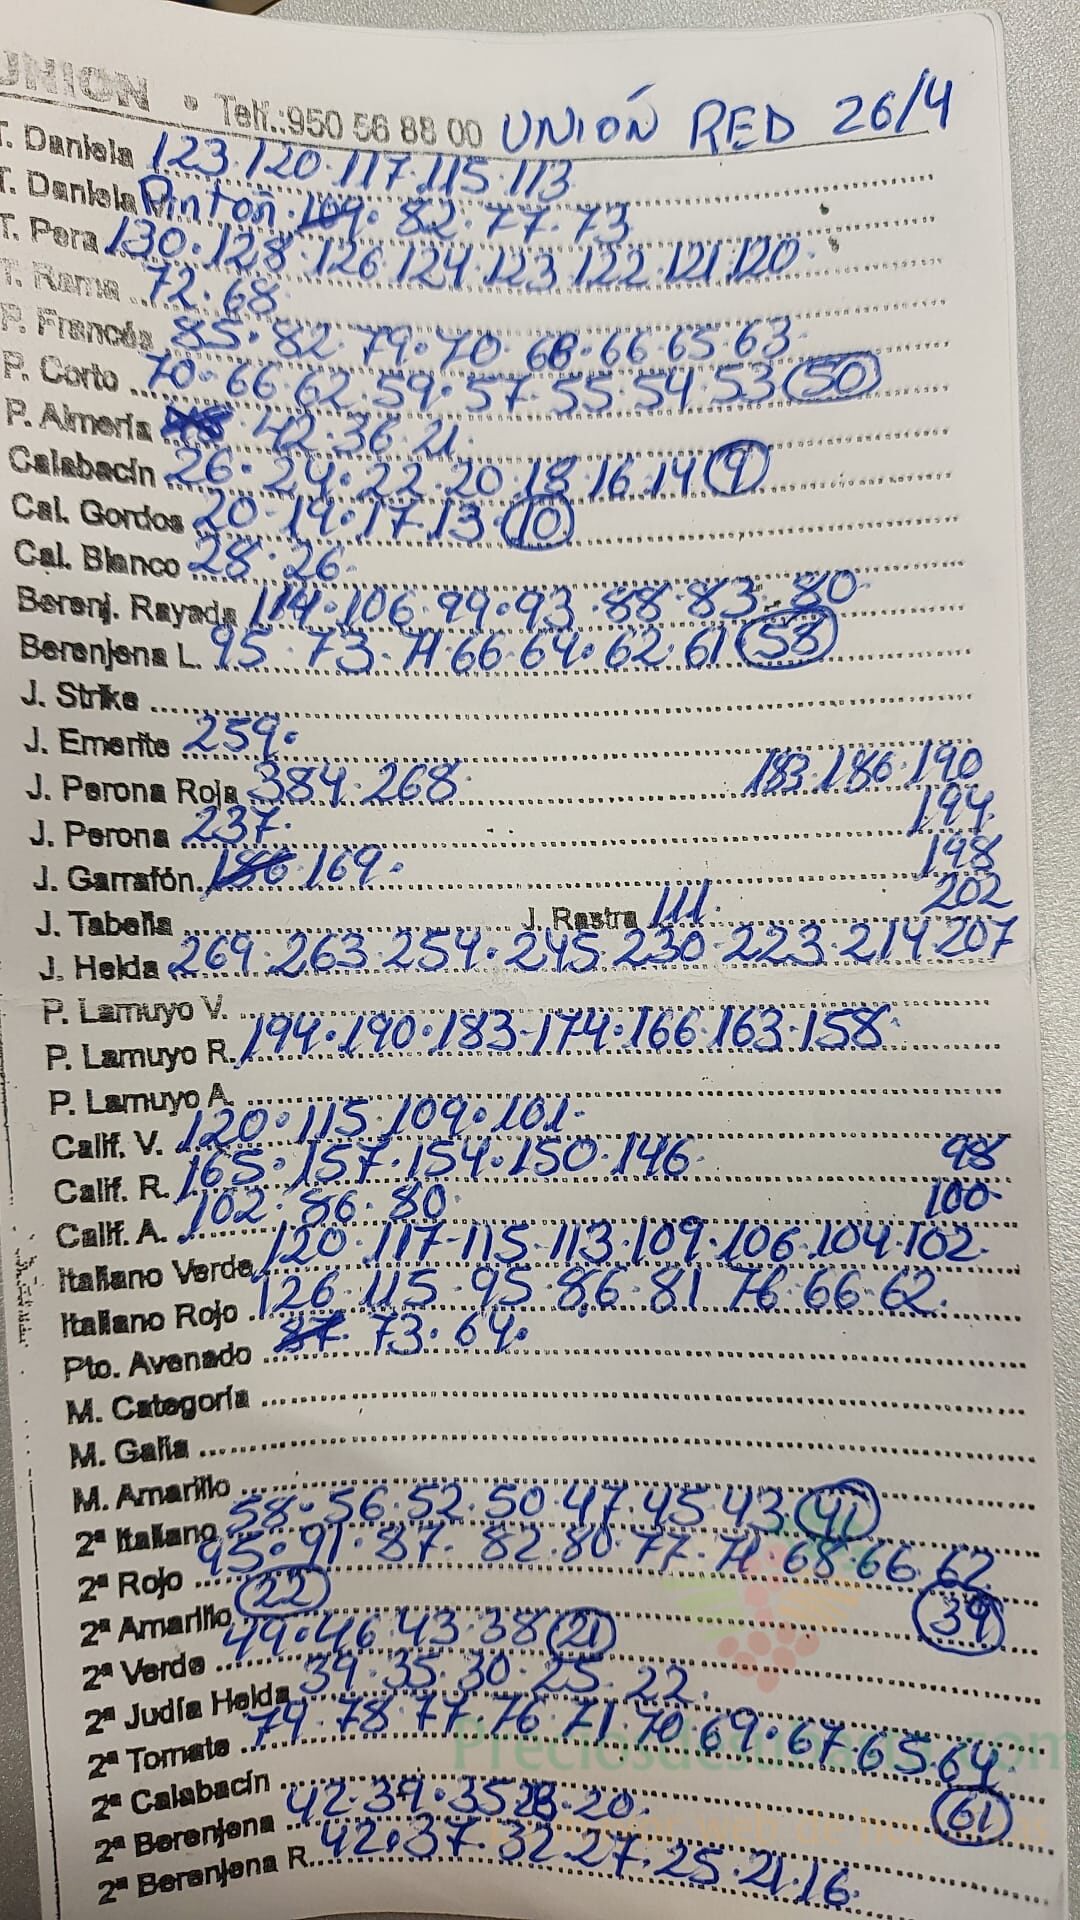 UNION • Telf.:950 56 88 00 UNIÓN RED 26/4
T. Daniela 123·120·117·115·113
T. Daniela Pintoñ · 82·77·73
T. Pera 130·128·126·124·123·122·121·120
T. Rama 72·68
P. Francés 85·82·79·70·68·66·65·63
P. Corto 70·66·62·59·57·55·54·53 50
P. Almería 42·36·21
Calabacín 26·24·22·20·18·16·14 9
Cal. Gordos 20·19·17·13·10
Cal. Blanco 28·26
Berenj. Rayada 114·106·99·93·88·83·80
Berenjena L. 95·73·71·66·64·62·61 58
J. Strike
J. Emerite 259
J. Perona Roja 384·268 183·186·190
J. Perona 237 194
J. Garrafón 169 198
202
J. Tabella J. Rastra 111
J. Helda 269·263·254·245·230·223·214·207
P. Lamuyo V.
P. Lamuyo R. 194·190·183·174·166·163·158
P. Lamuyo A.
Calif. V. 120·115·109·101
Calif. R. 165·157·154·150·146 98
Calif. A. 102·86·80 100
Italiano Verde 120·117·115·113·109·106·104·102
Italiano Rojo 126·115·95·86·81·76·66·62
Pto. Avenado 73·64
M. Categoría
M. Galia
M. Amarillo
2ª Italiano 58·56·52·50·47·45·43 41
2ª Rojo 95·91·87·82·80·77·71·68·66·62
2ª Amarillo 22 39
2ª Verde 49·46·43·38 21
2ª Judía Helda 39·35·30·25·22
2ª Tomate 79·78·77·76·71·70·69·67·65·64
2ª Calabacín 61
2ª Berenjena 42·39·35 20
2ª Berenjena R. 42·37·32·27·25·21·16
Preciosdesubasta.com